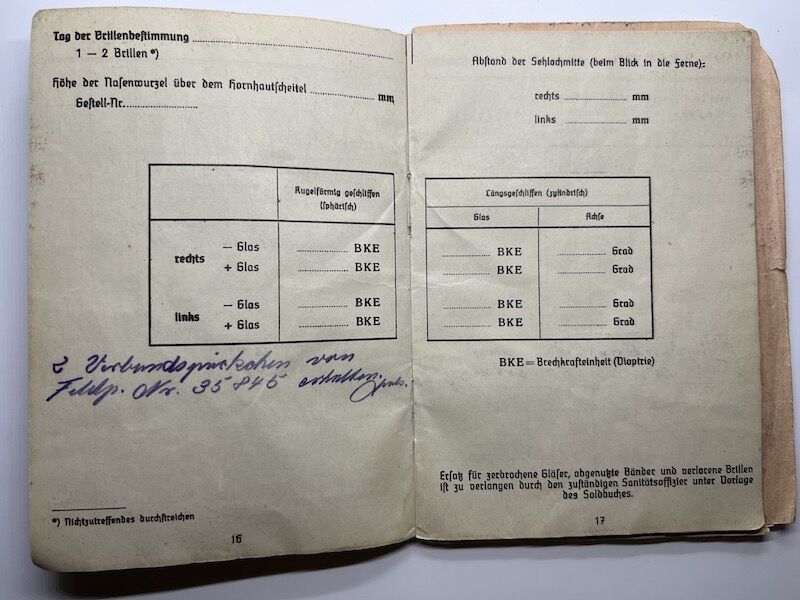 Tag der Brillenbestimmung
1 — 2 Brillen *)
Höhe der Nasenwurzel über dem Hornhautscheitel mm
Gestell-Nr.
Kugelförmig geschliffen
(sphärisch)
rechts
— Glas BKE
+ Glas BKE
links
— Glas BKE
+ Glas BKE
2 Verbandspäckchen von
Feldp. Nr. 35845 erhalten.
*) Nichtzutreffendes durchstreichen
16
Abstand der Sehlochmitte (beim Blick in die Ferne):
rechts mm
links mm
Längsgeschliffen (zylindrisch)
Glas Achse
BKE Grad
BKE Grad
BKE Grad
BKE Grad
BKE = Brechkrafteinheit (Dioptrie)
Ersatz für zerbrochene Gläser, abgenutzte Bänder und verlorene Brillen
ist zu verlangen durch den zuständigen Sanitätsoffizier unter Vorlage
des Soldbuches.
17